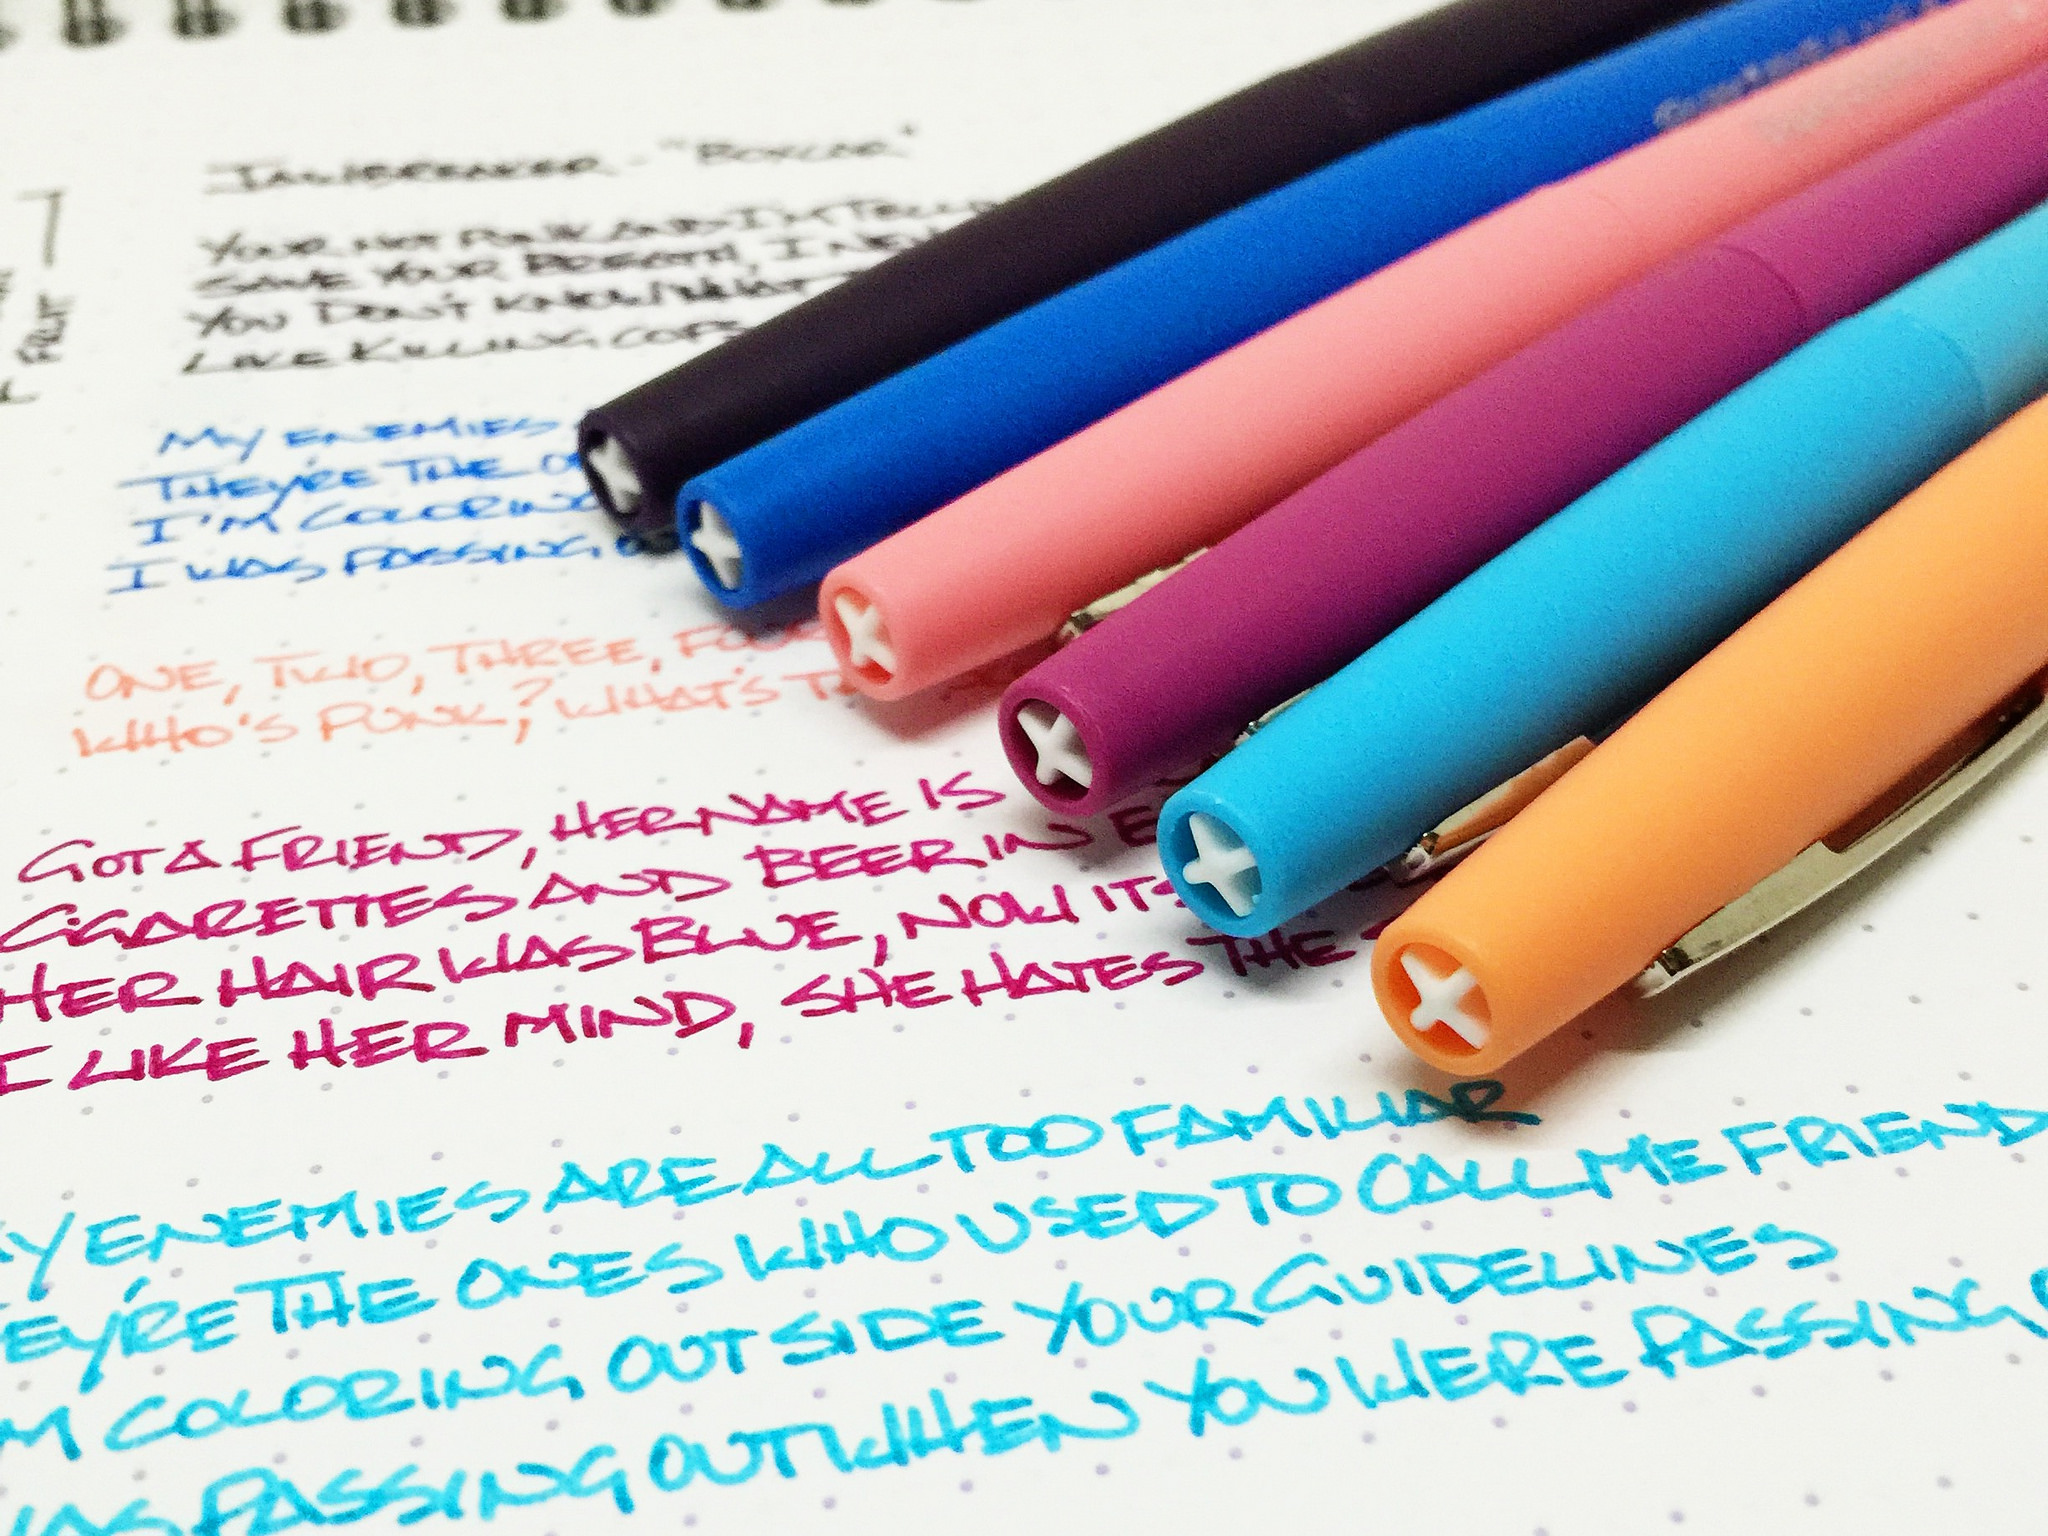 JAWBREAKER - "BOXCAR"
YOUR NOT PUNK AND I'M
SAVE YOUR BREATH, I
YOU DON'T KNOW WHAT
LIKE KILLING COPS
MY ENEMIES
THEY'RE THE
I'M COLORING
I WAS PASSING
ONE, TWO, THREE,
WHO'S PUNK, ? WHAT'S
GOT A FRIEND, HER NAME IS
CIGARETTES AND BEER IN
HER HAIR WAS BLUE, NOW ITS
I LIKE HER MIND, SHE HATES THE
ENEMIES ARE ALL TOO FAMILIAR
THE ONES WHO USED TO CALL ME FRIEND
COLORING OUTSIDE YOUR GUIDELINES
PASSING OUT WHEN YOU WERE PASSING
FRUIT